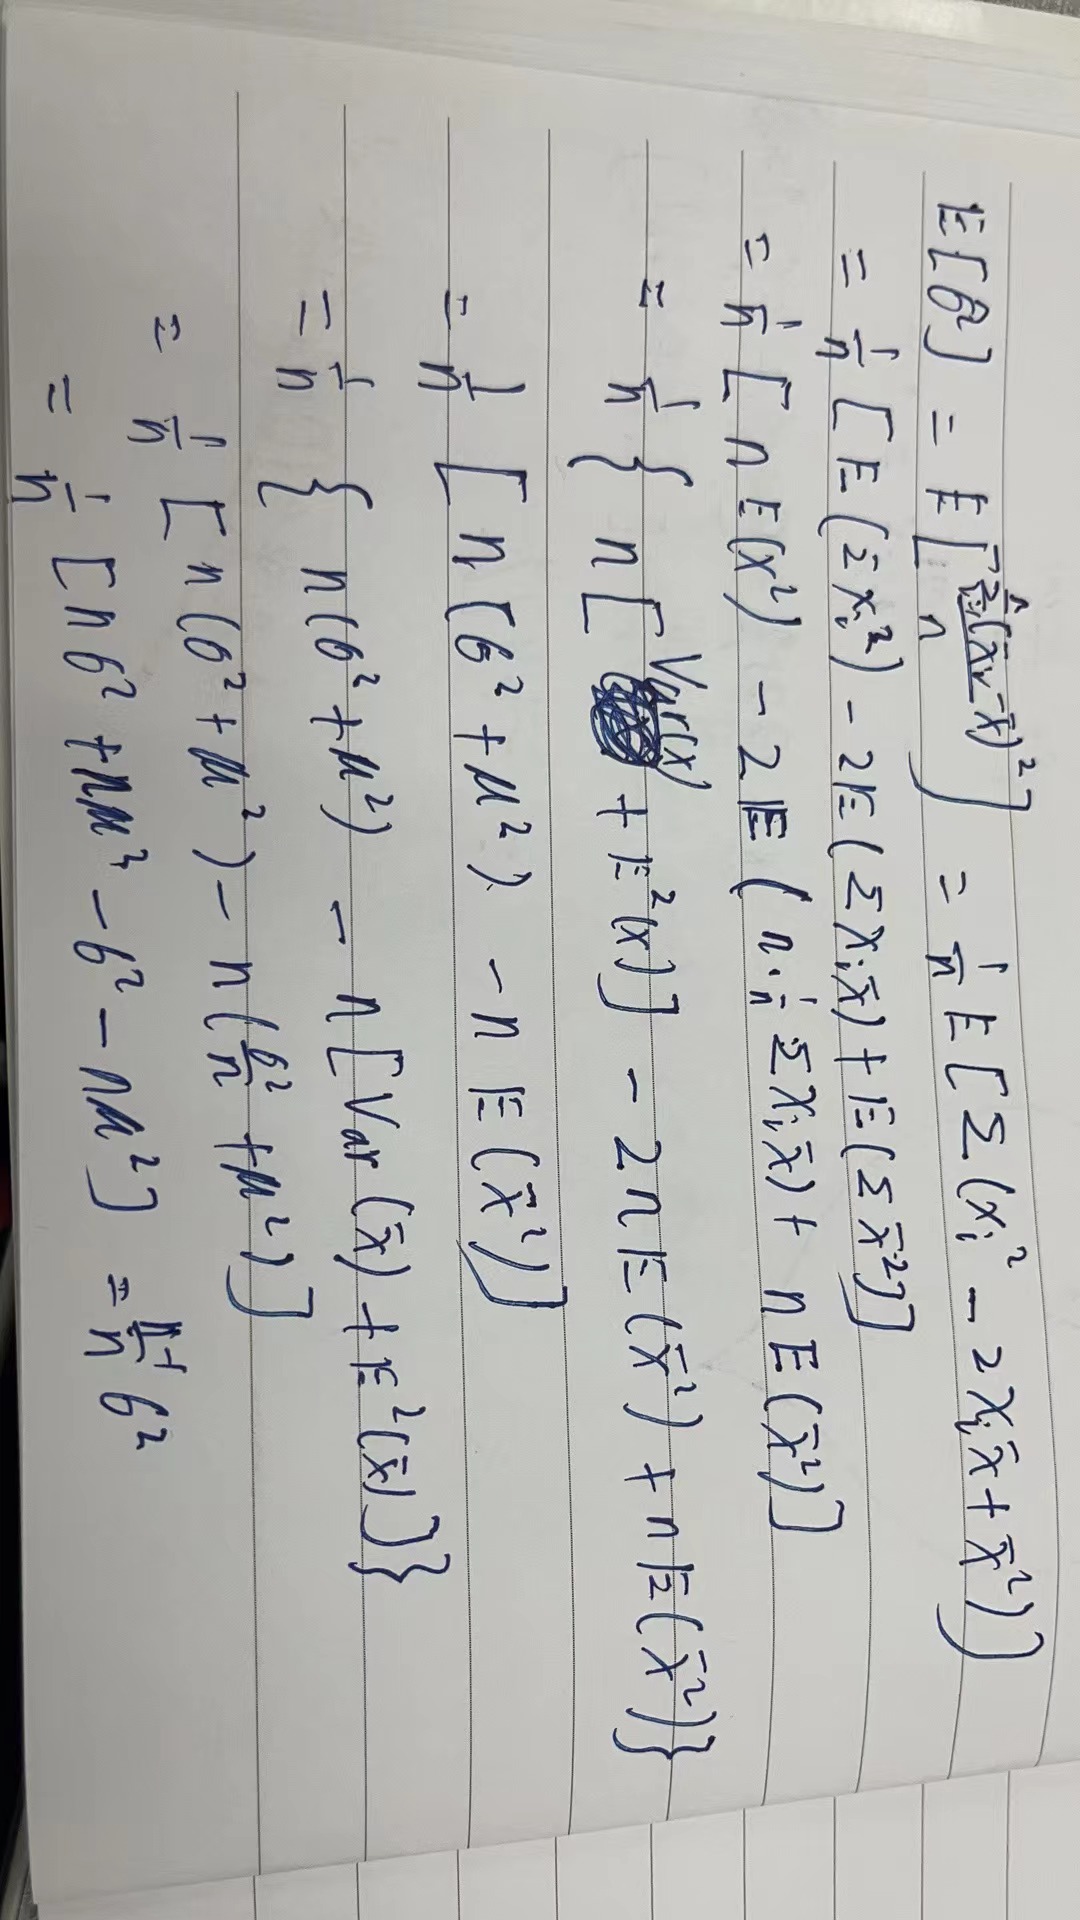 E[θ̂] = E[Σ(xᵢ-x̄)²/n] = 1/n E[Σ(xᵢ² - 2xᵢx̄ + x̄²)]
= 1/n [E(Σxᵢ²) - 2E(Σxᵢx̄) + E(Σx̄²)]
= 1/n [nE(x²) - 2E(n·1/n Σxᵢx̄) + nE(x̄²)]
= 1/n {n[Var(x) + E²(x)] - 2nE(x̄²) + nE(x̄²)}
= 1/n [n(σ²+μ²) - nE(x̄²)]
= 1/n {n(σ²+μ²) - n[Var(x̄) + E²(x̄)]}
= 1/n [n(σ²+μ²) - n(σ²/n + μ²)]
= 1/n [nσ² + nμ² - σ² - nμ²] = n-1/n σ²